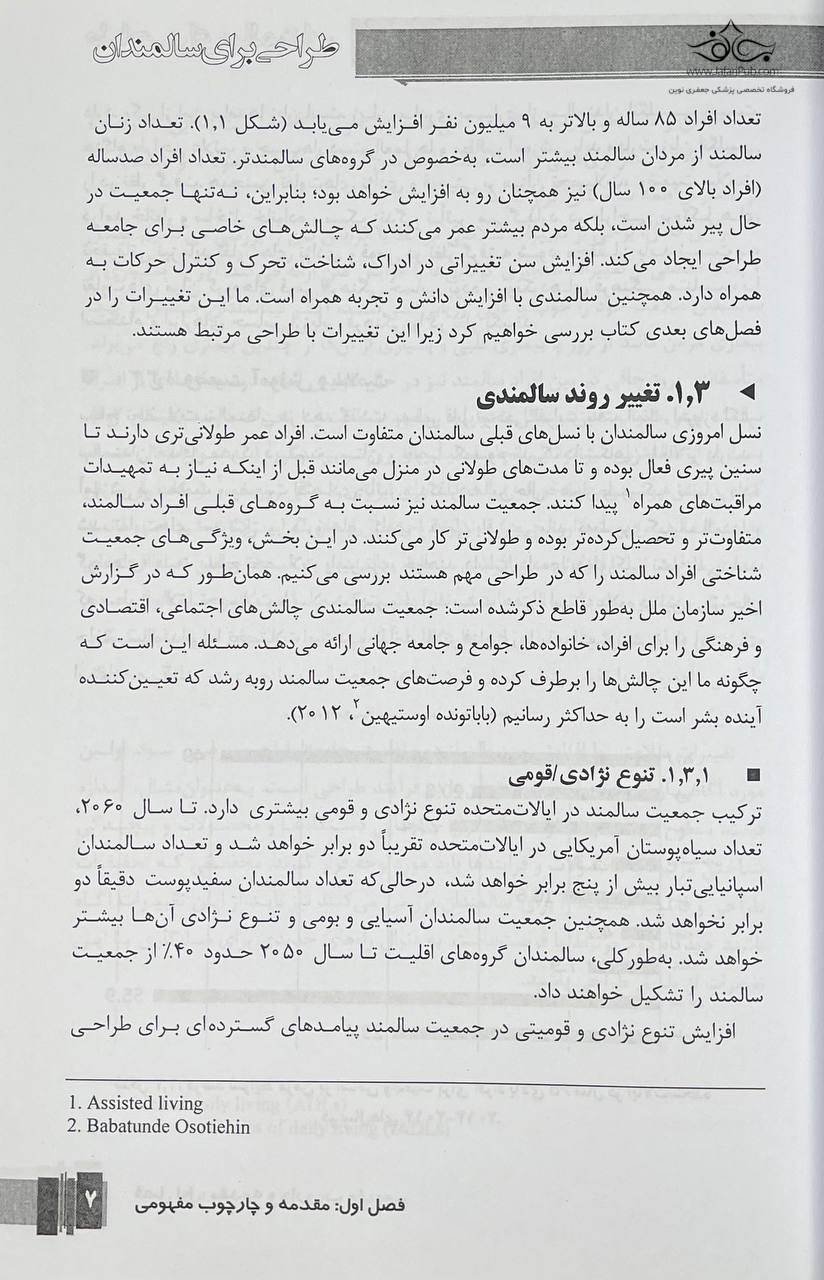 طراحی برای سالمندان
www.JafariPub.com
فروشگاه تخصصی پزشکی جعفری نوین
تعداد افراد ۸۵ ساله و بالاتر به ۹ میلیون نفر افزایش می‌یابد (شکل ۱,۱). تعداد زنان
سالمند از مردان سالمند بیشتر است، به‌خصوص در گروه‌های سالمندتر. تعداد افراد صدساله
(افراد بالای ۱۰۰ سال) نیز همچنان رو به افزایش خواهد بود؛ بنابراین، نه‌تنها جمعیت در
حال پیر شدن است، بلکه مردم بیشتر عمر می‌کنند که چالش‌های خاصی برای جامعه
طراحی ایجاد می‌کند. افزایش سن تغییراتی در ادراک، شناخت، تحرک و کنترل حرکات به
همراه دارد. همچنین سالمندی با افزایش دانش و تجربه همراه است. ما این تغییرات را در
فصل‌های بعدی کتاب بررسی خواهیم کرد زیرا این تغییرات با طراحی مرتبط هستند.
۱,۳. تغییر روند سالمندی
نسل امروزی سالمندان با نسل‌های قبلی سالمندان متفاوت است. افراد عمر طولانی‌تری دارند تا
سنین پیری فعال بوده و تا مدت‌های طولانی در منزل می‌مانند قبل از اینکه نیاز به تمهیدات
مراقبت‌های همراه۱ پیدا کنند. جمعیت سالمند نیز نسبت به گروه‌های قبلی افراد سالمند،
متفاوت‌تر و تحصیل‌کرده‌تر بوده و طولانی‌تر کار می‌کنند. در این بخش، ویژگی‌های جمعیت
شناختی افراد سالمند را که در طراحی مهم هستند بررسی می‌کنیم. همان‌طور که در گزارش
اخیر سازمان ملل به‌طور قاطع ذکرشده است: جمعیت سالمندی چالش‌های اجتماعی، اقتصادی
و فرهنگی را برای افراد، خانواده‌ها، جوامع و جامعه جهانی ارائه می‌دهد. مسئله این است که
چگونه ما این چالش‌ها را برطرف کرده و فرصت‌های جمعیت سالمند روبه رشد که تعیین‌کننده
آینده بشر است را به حداکثر رسانیم (باباتونده اوستیهین۲، ۲۰۱۲).
۱,۳,۱. تنوع نژادی/قومی
ترکیب جمعیت سالمند در ایالات‌متحده تنوع نژادی و قومی بیشتری دارد. تا سال ۲۰۶۰،
تعداد سیاه‌پوستان آمریکایی در ایالات‌متحده تقریباً دو برابر خواهد شد و تعداد سالمندان
اسپانیایی‌تبار بیش از پنج برابر خواهد شد، درحالی‌که تعداد سالمندان سفیدپوست دقیقاً دو
برابر نخواهد شد. همچنین جمعیت سالمندان آسیایی و بومی و تنوع نژادی آن‌ها بیشتر
خواهد شد. به‌طورکلی، سالمندان گروه‌های اقلیت تا سال ۲۰۵۰ حدود ۴۰٪ از جمعیت
سالمند را تشکیل خواهند داد.
افزایش تنوع نژادی و قومیتی در جمعیت سالمند پیامدهای گسترده‌ای برای طراحی
1. Assisted living
2. Babatunde Osotiehin
فصل اول: مقدمه و چارچوب مفهومی
۷